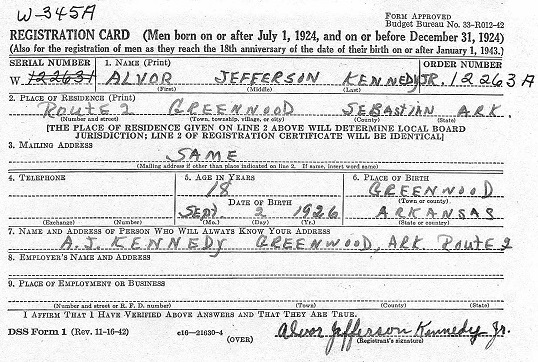 W-345A
FORM APPROVED
Budget Bureau No. 33-R012-42
REGISTRATION CARD (Men born on or after July 1, 1924, and on or before December 31, 1924)
(Also for the registration of men as they reach the 18th anniversary of the date of their birth on or after January 1, 1943.)
SERIAL NUMBER 1. NAME (Print) ORDER NUMBER
W. 122631 ALVOR JEFFERSON KENNEDY JR. 12263A
(First) (Middle) (Last)
2. PLACE OF RESIDENCE (Print)
ROUTE 2 GREENWOOD SEBASTIAN ARK.
(Number and street) (Town, township, village, or city) (County) (State)
[THE PLACE OF RESIDENCE GIVEN ON LINE 2 ABOVE WILL DETERMINE LOCAL BOARD
JURISDICTION; LINE 2 OF REGISTRATION CERTIFICATE WILL BE IDENTICAL]
3. MAILING ADDRESS
SAME
(Mailing address if other than place indicated on line 2. If same, insert word same)
4. TELEPHONE 5. AGE IN YEARS 6. PLACE OF BIRTH
18 GREENWOOD
DATE OF BIRTH (Town or county)
Sept. 2 1926 ARKANSAS
(Exchange) (Number) (Mo.) (Day) (Yr.) (State or country)
7. NAME AND ADDRESS OF PERSON WHO WILL ALWAYS KNOW YOUR ADDRESS
A.J. KENNEDY GREENWOOD, ARK. ROUTE 2
8. EMPLOYER'S NAME AND ADDRESS
9. PLACE OF EMPLOYMENT OR BUSINESS
(Number and street or R. F. D. number) (Town) (County) (State)
I AFFIRM THAT I HAVE VERIFIED ABOVE ANSWERS AND THAT THEY ARE TRUE.
DSS Form 1 (Rev. 11-16-42) c16-21630-4 Alvor Jefferson Kennedy Jr.
(OVER) (Registrant's signature)